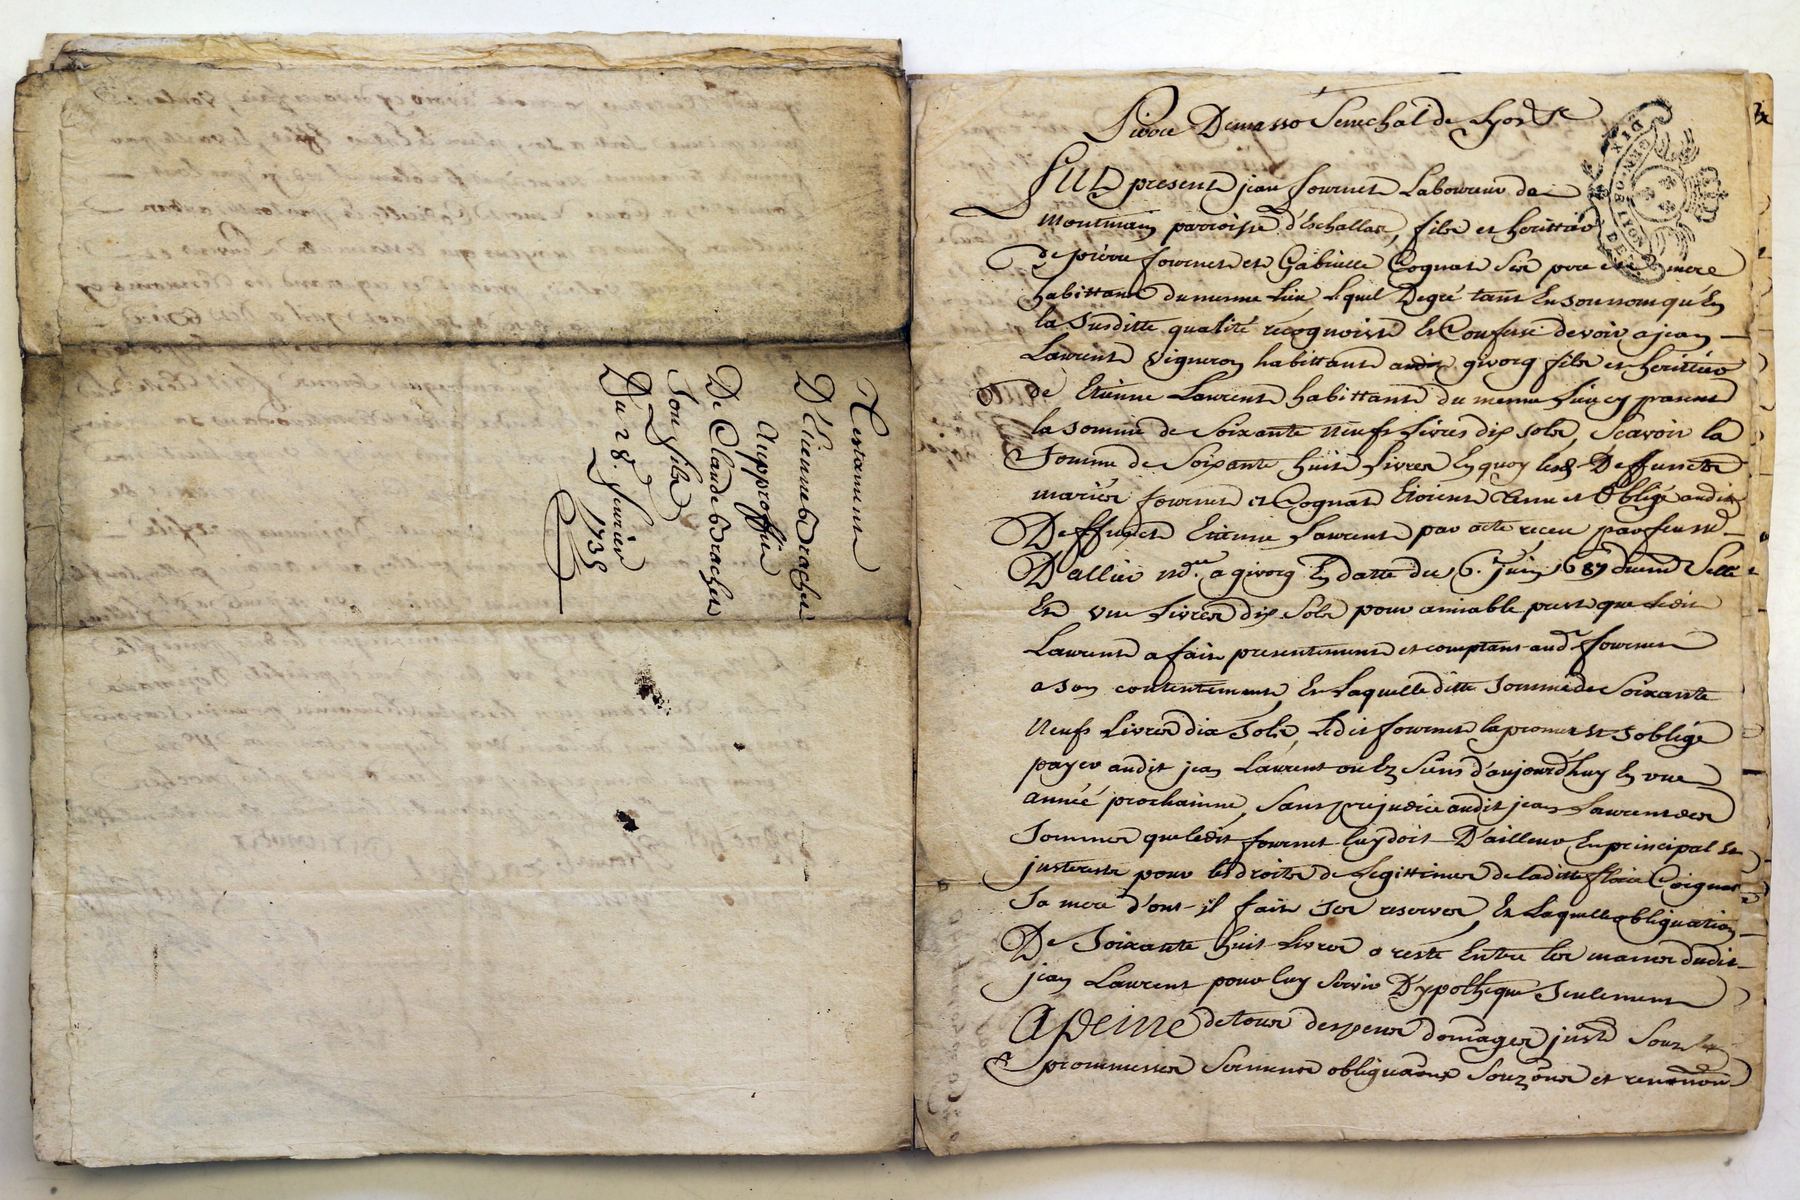 Testament
D'Etienne Drachet
Au proffit
De Claude Drachet
Son fils
Du 28. fevrier 1735
Pierre Demasso Senechal de Lyon &c
Fut present jean fournet Laboureur de
montmain parroisse d'Eschallas, fils et heritier
de pierre fournet et Gabrielle Cognat ses pere et mere
habittant du mesme Lieu Lequel De gré tant En son nom qu'En
la Susditte qualité recognoist Et Confesse devoir a jean
Laurent vigneron habittant audit givorg fils et heritier
de Etienne Laurent habittant du mesme Lieu cy present
la somme de Soixante neufs Livres dix sols, Scavoir la
Somme de Soixante huit Livres En quoy lesd. Deffuncts
mariés fournet et Cognat Etoient tenu et Obligé audit
Deffunct Etienne Laurent par acte receu par feu me
Dallier nore. a givorg En datte du 6. juin 1687 duement Sellé
Et une Livres dix Sols pour amiable prest que Ledit
Laurent a fait presentement et comptant aud. fournet
a Son contentement, Et Laquelle ditte Somme de Soixante
neufs Livres dix Sols, Ledit fournet la promet Et S'oblige
payer audit jean Laurent ou Es Siens d'aujourd'huy En une
année prochaine, Sans prejudice audit jean Laurent des
Sommes que Ledit fournet luy doit D'ailleur En principal Et
interests pour les droits de Legittimes de laditte Coignat
Sa mere d'ont-il fait Ses reserves, Et Laquelle obligation
De Soixante huit Livres a resté Entre les mains dudit
jean Laurent pour luy Servir D'ypotheque Seulement
A peine de tous despens domages justs Sous Les
promesses Serments obligations Soumons et renon̄ons
DE LYON
GENERAL
DIX D.